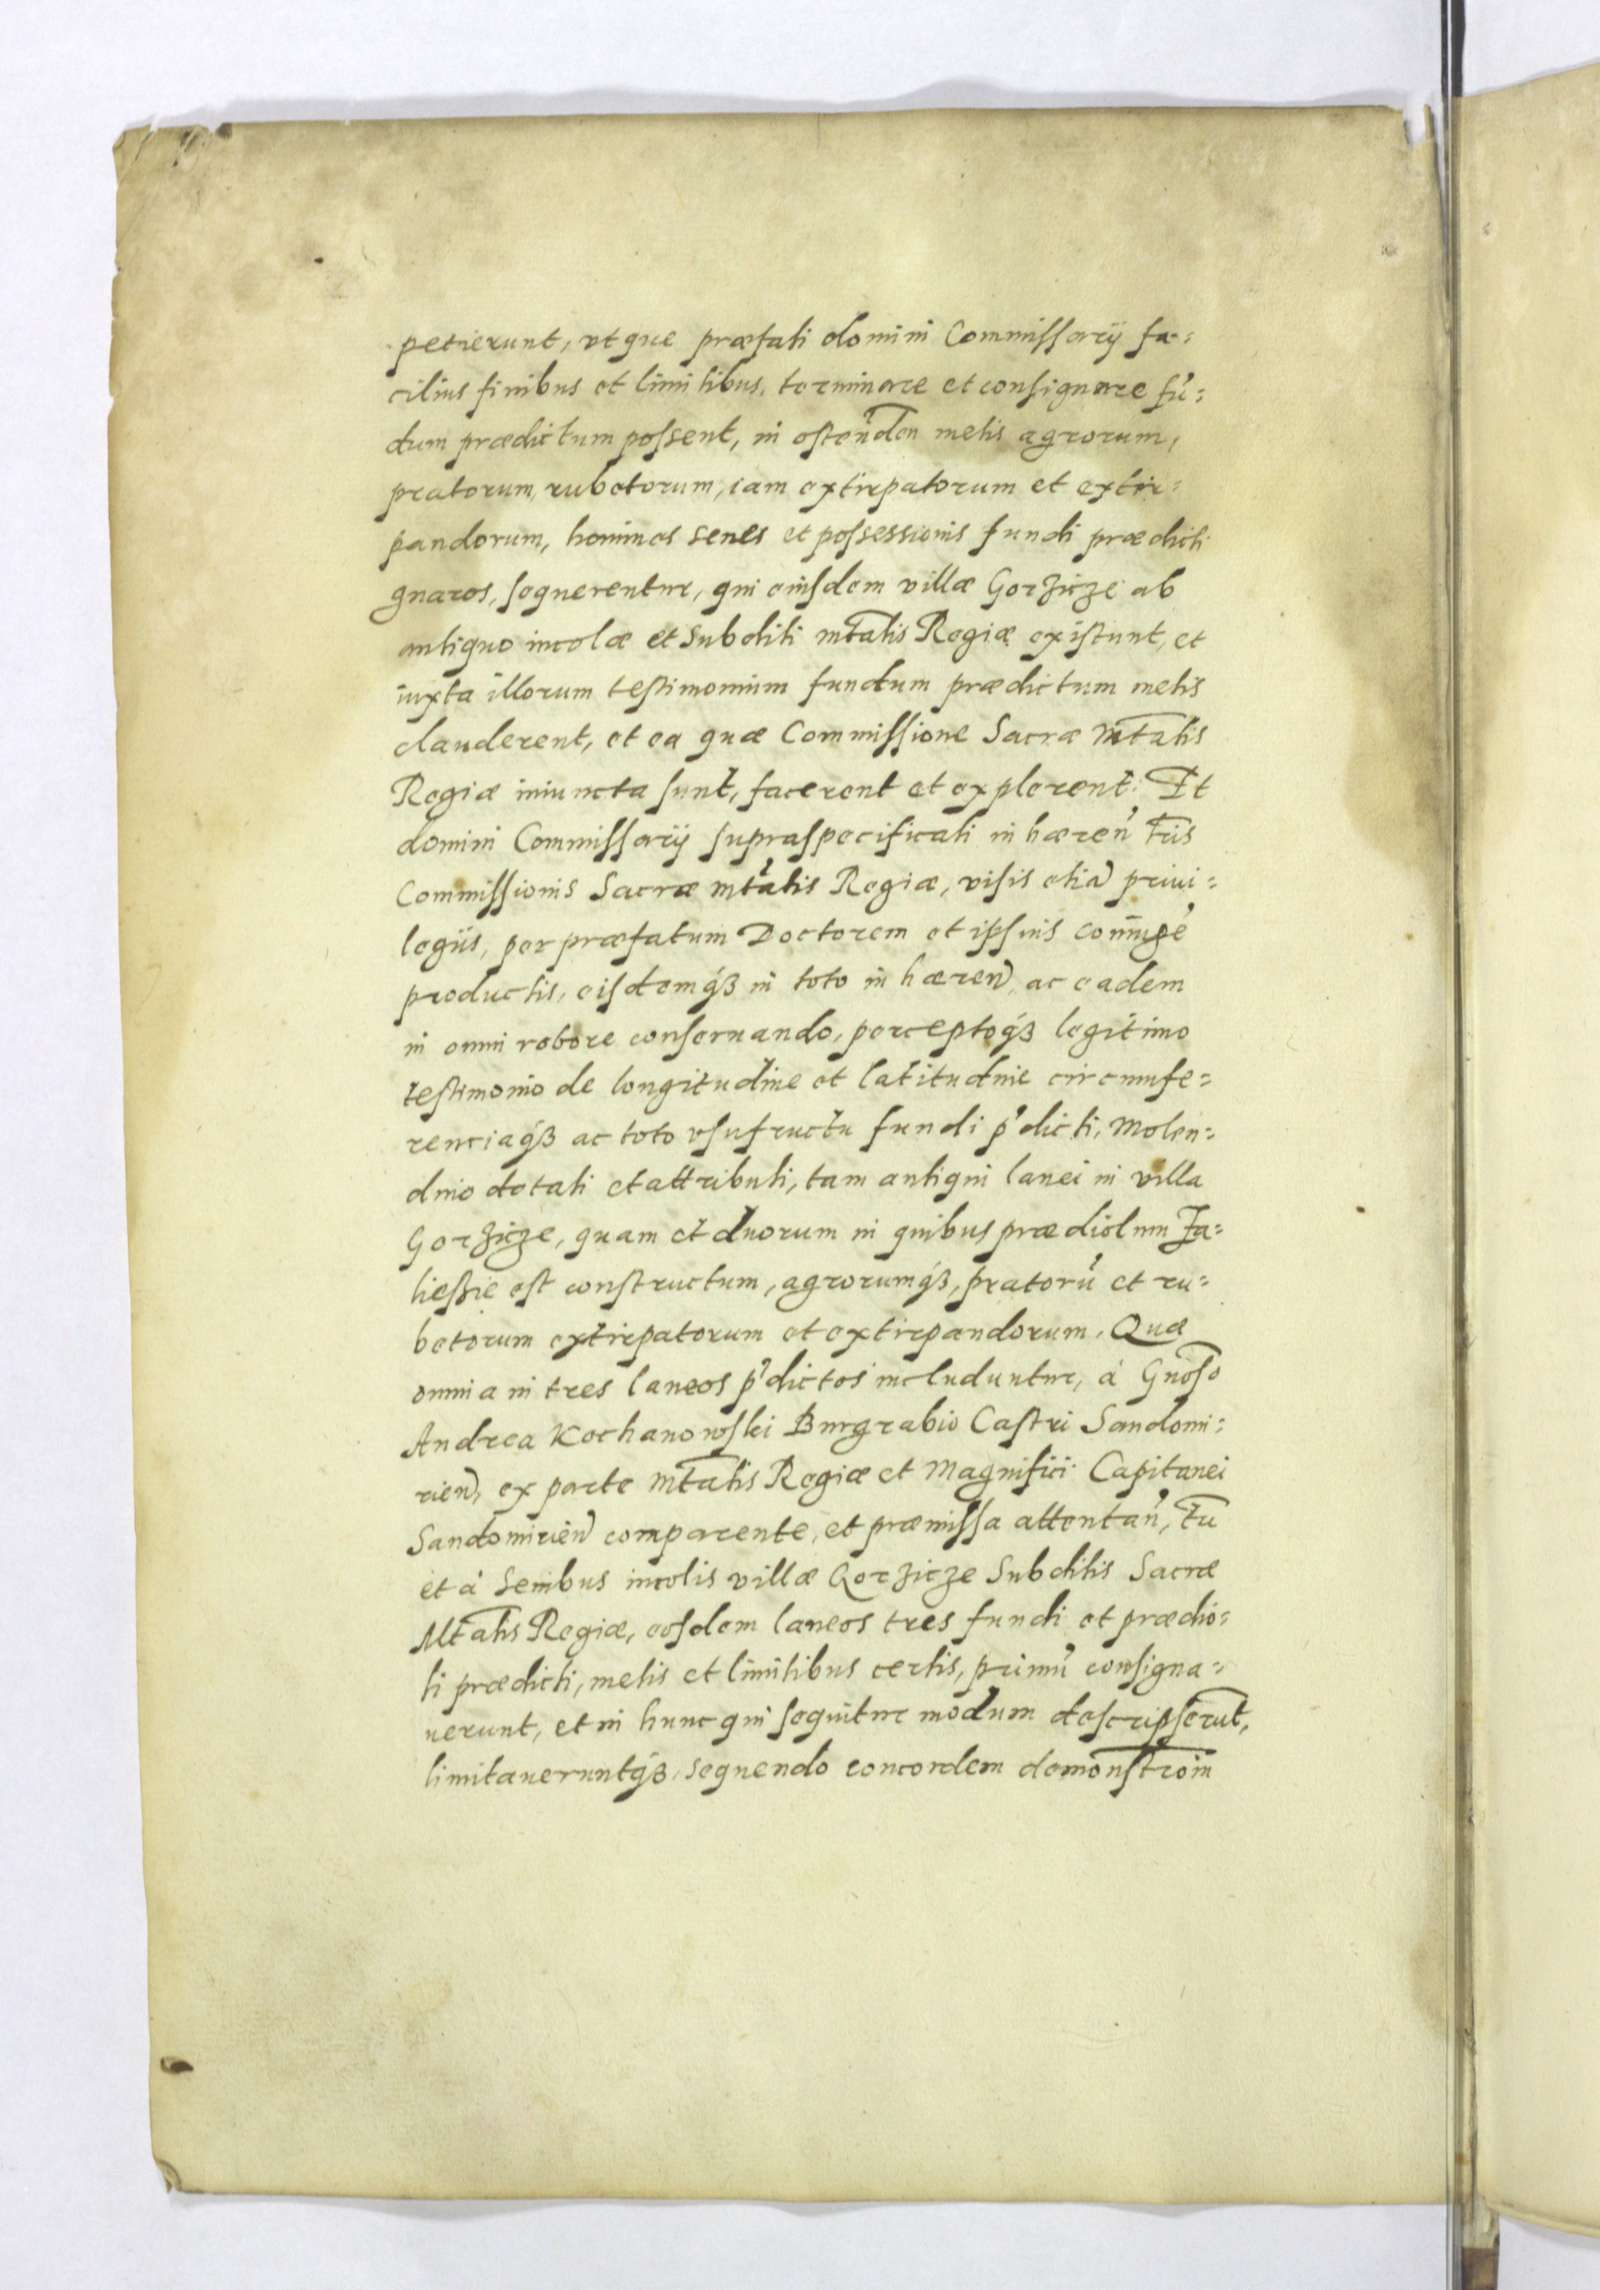 petierunt, vt que præfati domini Commissarij fa=
cilius finibus et limitibus, terminare et consignare fu᾽=
dum prædictum possent, in osten̅den metis agrorum,
pratorum, rubetorum, iam extirpatorum et extir=
pandorum, homines senes et possessionis fundi prædicti
gnaros, sequerentur, qui eiusdem villæ Gorzicze ab
antiquo incolæ et subditi mta̅tis Regiæ existunt, et
iuxta illorum testimonium fundum prædictum metis
clauderent, et ea quæ Commissione Sacræ Mta̅tis
Regiæ iniuncta sunt, facerent et explerent. Et
domini Commissarij supraspecificati in hæren᾽ tr̅is
Commissionis Sacræ mta̅tis Regiæ, visis etia̅ priui=
legiis, per præfatum Doctorem et ipsius con̅iuge᾽
productis, eisdemqꝫ in toto in hæren̅, ac eadem
in omni robore conseruando, perceptoqꝫ legitimo
testimonio de longitudine et latitudine circumfe=
renciaqꝫ ac toto vsufructu fundi p᾽dicti, Molen=
dino dotati et attributi, tam antiqui lanei in villa
Gorzicze, quam et duorum in quibus prædiolum Za=
liessie est constructum, agrorumqꝫ, pratoru᾽ et ru=
betorum extirpatorum et extirpandorum. Quæ
omnia in tres laneos p᾽dictos includuntur, à Gn̅oso
Andrea Kochanowski Burgrabio Castri Sandomi=
rien̅, ex parte Mta̅tis Regiæ et Magnifici Capitanei
Sandomirien̅ comparente, et præmissa attentan᾽, tu̅
et à senibus incolis villæ Gorzicze Subditis Sacræ
Mta̅tis Regiæ, eosdem laneos tres fundi et prædio=
li prædicti, metis et limitibus certis, primu᾽ consigna=
uerunt, et in hunc qui sequitur modum descripseru̅t,
limitaueruntqꝫ, sequendo concordem demonstro̅in